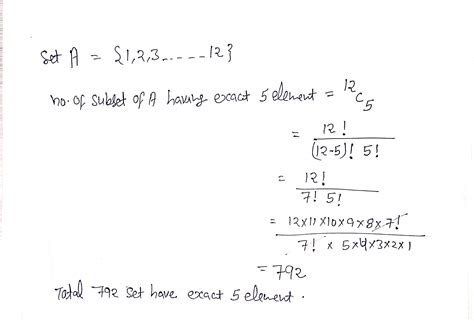 Set A = {1,2,3.....12}
no. of subset of A having exact 5 element = ¹²C₅
= 12! / (12-5)! 5!
= 12! / 7! 5!
= 12x11x10x9x8x7! / 7! x 5x4x3x2x1
= 792
Total 792 set have exact 5 element.